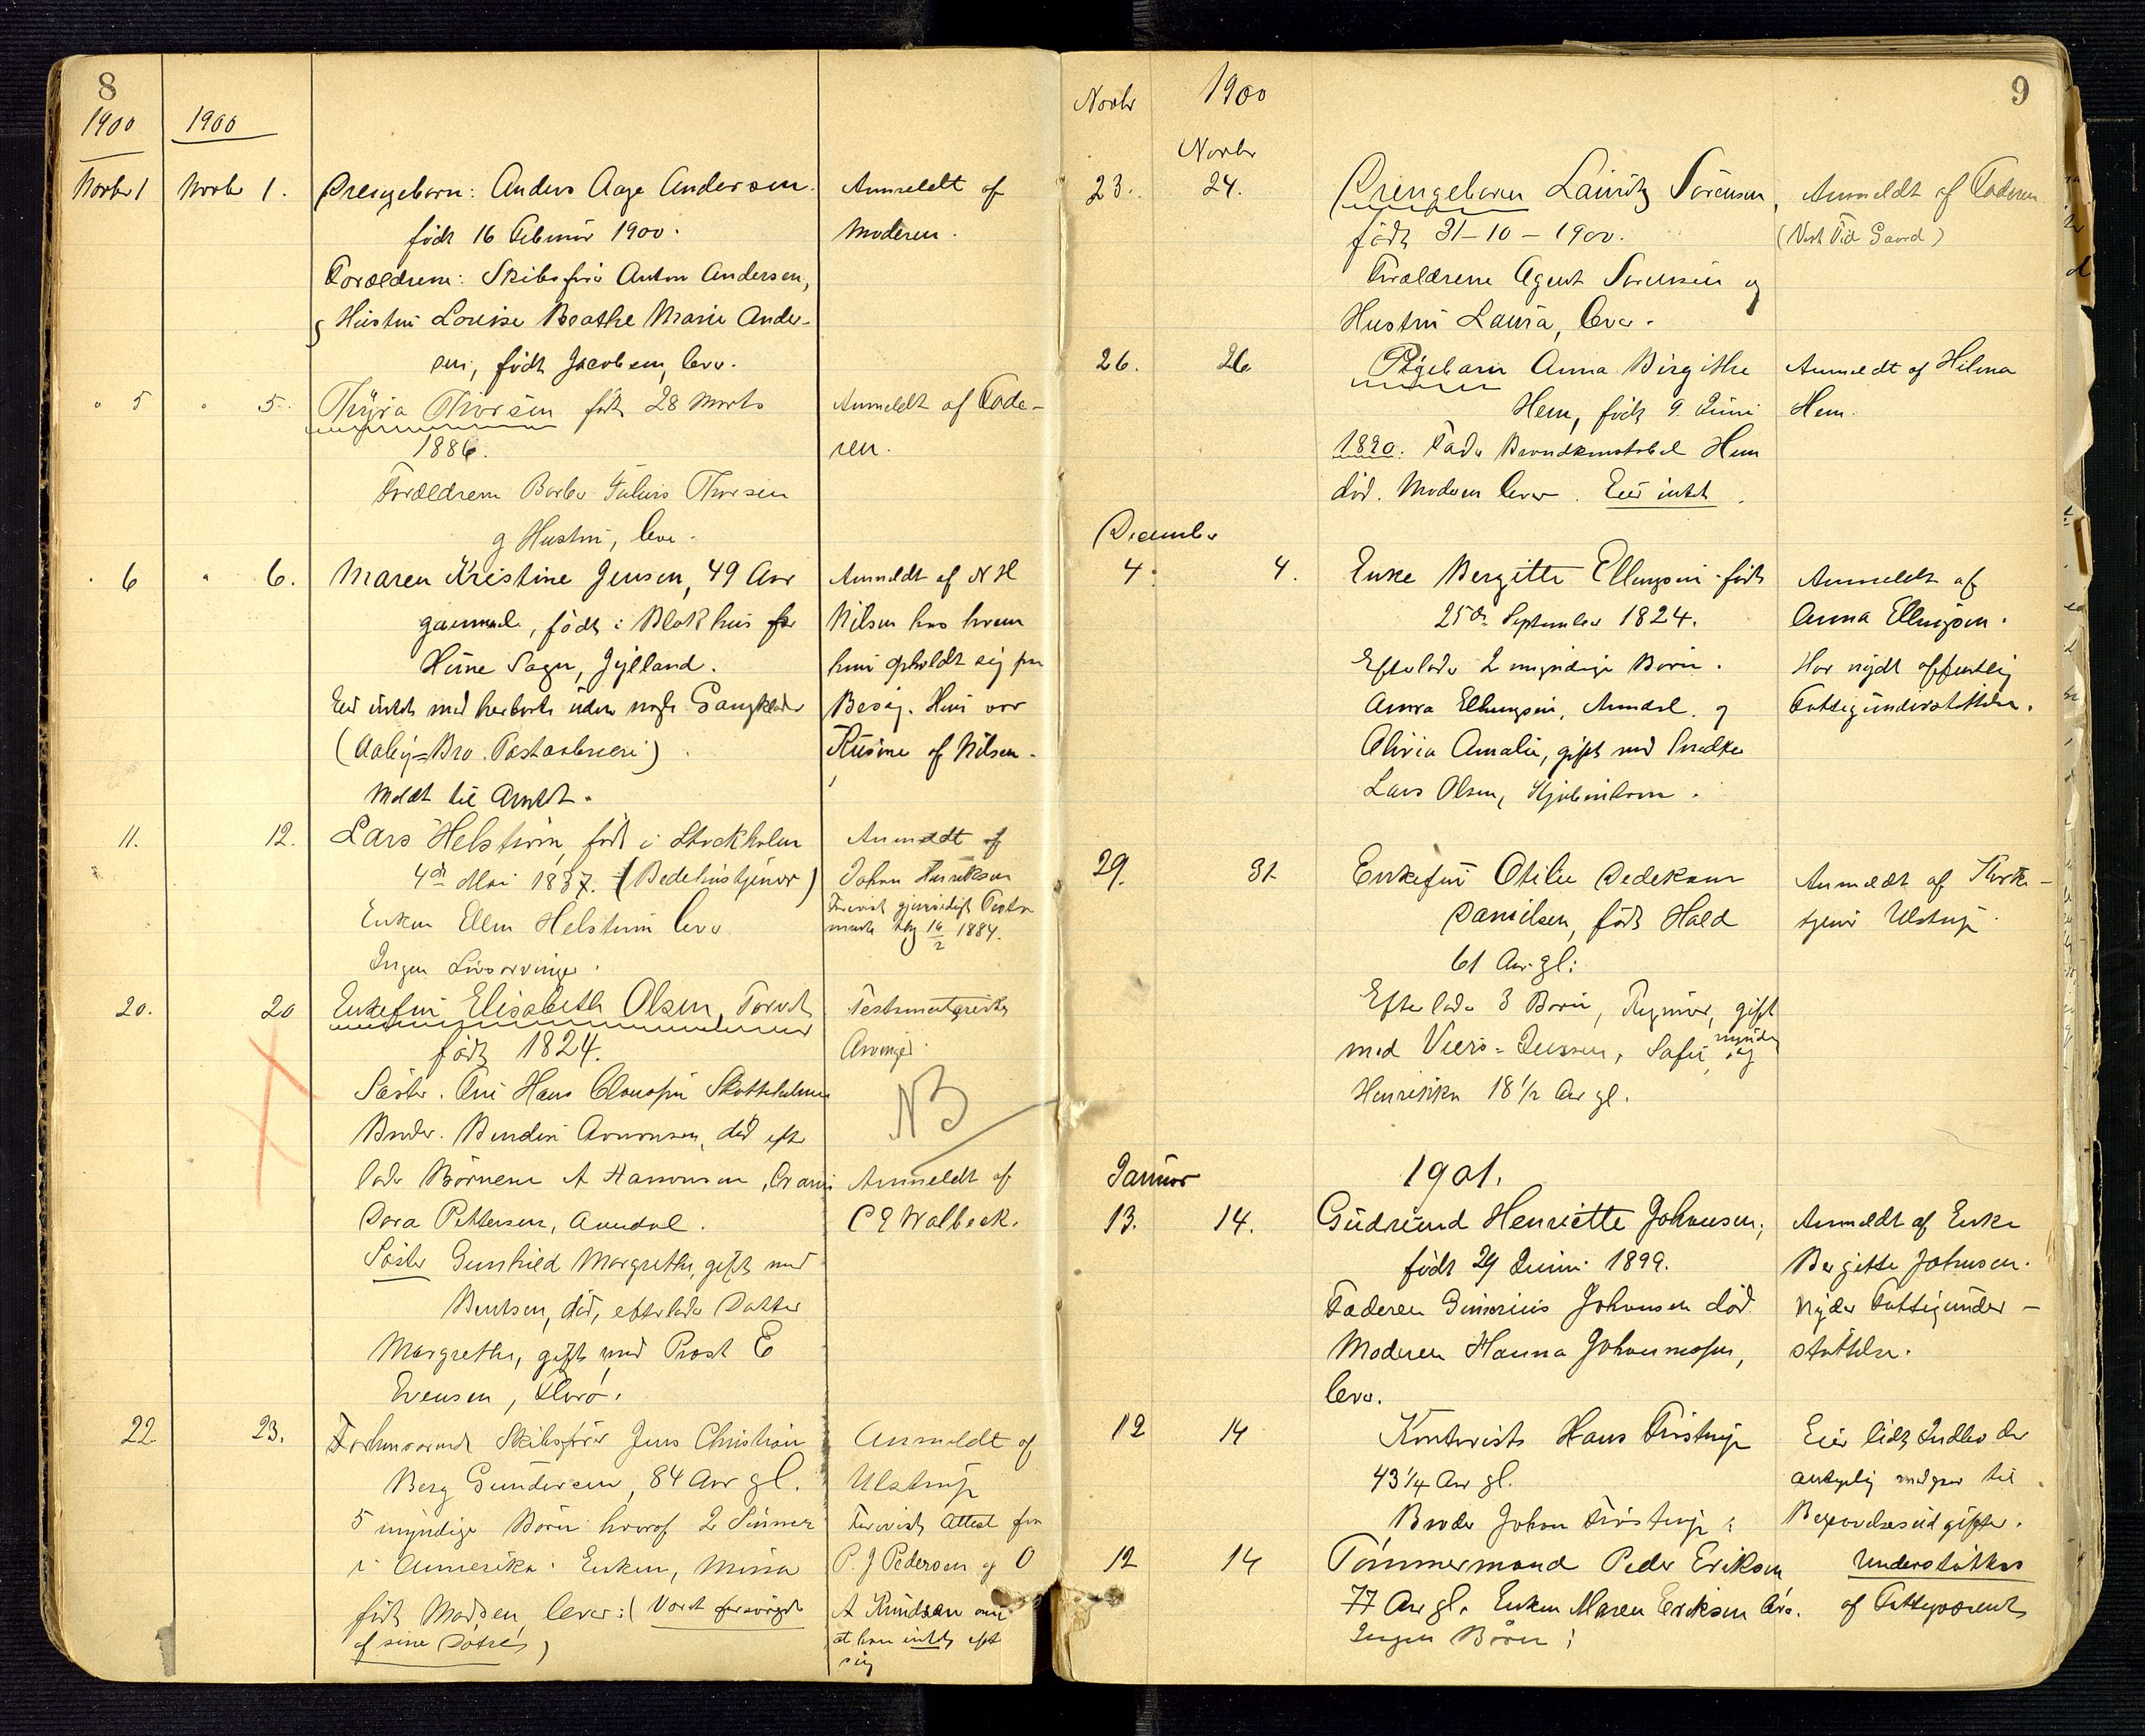 8
1900 1900
Novbr 1 Novbr 1. Drengebarn: Anders Aage Andersen. Anmeldt af
født 16 Februar 1900. Moderen.
Forældrene: Skibsfører Anton Andersen,
og Hustru Louise Beathe Marie Ander-
sen, født Jacobsen, lever.
" 5 " 5. Thyra Thorsen født 28 Marts Anmeldt af Fade-
1886. ren.
Forældrene Barber Julius Thorsen
og Hustru, lever.
" 6 " 6. Maren Kristine Jensen, 49 Aar Anmeldt af N H
gammel, født i Blokhus
Hune Sogn, Jylland. hun opholdt sig paa
Eier intet med herborte uden nogle Gangklæder Besøg. Hun var
(Aaby=Bro. Postaabneri) Kusine af Nilsen.
Meldt til Amtet.
11. 12. Lars Helstrøm, født i Stockholm Anmeldt af
4de Mai 1837. (Bedehustjener) Johan Henriksen
Enken Ellen Helstrøm lever Forevist gjensidigt Testa
mente dag 16/2 1884.
Ingen Livsarvinger.
20. 20 Enkefru Elisabeth Olsen, Torvet Testamentariske
født 1824. Arvinger.
Søster. Fru Hans Clausen
NB
Broder. død efter
lader Børnene A Aanonsen, Anmeldt af
Dora Pettersen, Arendal. C E Walbeck.
Søster Gunhild Margrethe, gift med
Bentsen, død, efterlader Datter
Margrethe, gift med Prost E
Evensen, Florø.
22. 23. Forhenværende Skibsfører Jens Christian Anmeldt af
Berg Gundersen, 84 Aar gl. Ulstrup
5 myndige Børn hvoraf 2 Sønner Forevist Attest fra
i Amerika. Enken, Mina P. J Pedersen og O
født Madsen, lever. (Været forsørget A Knudsen om
af sine Døtre) at han intet eft
sig
Novbr 1900 9
Novbr
23. 24. Drengebarn Lauritz Sørensen, Anmeldt af Faderen
født 31-10-1900.
Forældrene Agent Sørensen og
Hustru Laura, lever.
26. 26 Pigebarn Anna Birgithe Anmeldt af Hilma
Hem, født 9 Juni Hem.
1890. Fader Brandkonstabel Hem
død. Moderen lever. Eier intet.
December
4. 4. Enke Bergitte Ellingsen født Anmeldt af
25de September 1824. Anna Ellingsen.
Efterlader 2 myndige Børn. Har nydt offentlig
Anna Ellingsen, Arendal, og Fattigunderstøttelse.
Olivia Amalie, gift med Snedker
Lars Olsen, Kjøbenhavn.
29. 31 Enkefru Otilie Dedekam Anmeldt af Kirke-
Danielsen, født Hald tjener Ulstrup.
61 Aar gl:
Efterlader 3 Børn, Ragnar, gift
med Sofie, myndig, og
Henrikke 18 1/2 Aar gl.
Januar 1901.
13. 14. Gudrund Henriette Johnsen, Anmeldt af Enke
født 29 Juni 1899. Bergitte Johnsen.
Faderen Johnsen død. Nyder Fattigunder-
Moderen Hanna støttelse.
lever.
12 14 Kontorist Hans Frøstrup Eier lidt Indbo der
43 1/4 Aar gl. antagelig medgaar til
Broder Johan Frøstrup. Begravelsesudgifter.
12 14 Tømmermand Peder Eriksen Understøttes
77 Aar gl. Enken Maren Eriksen lever. af Fattigvæsenet
Ingen Børn.